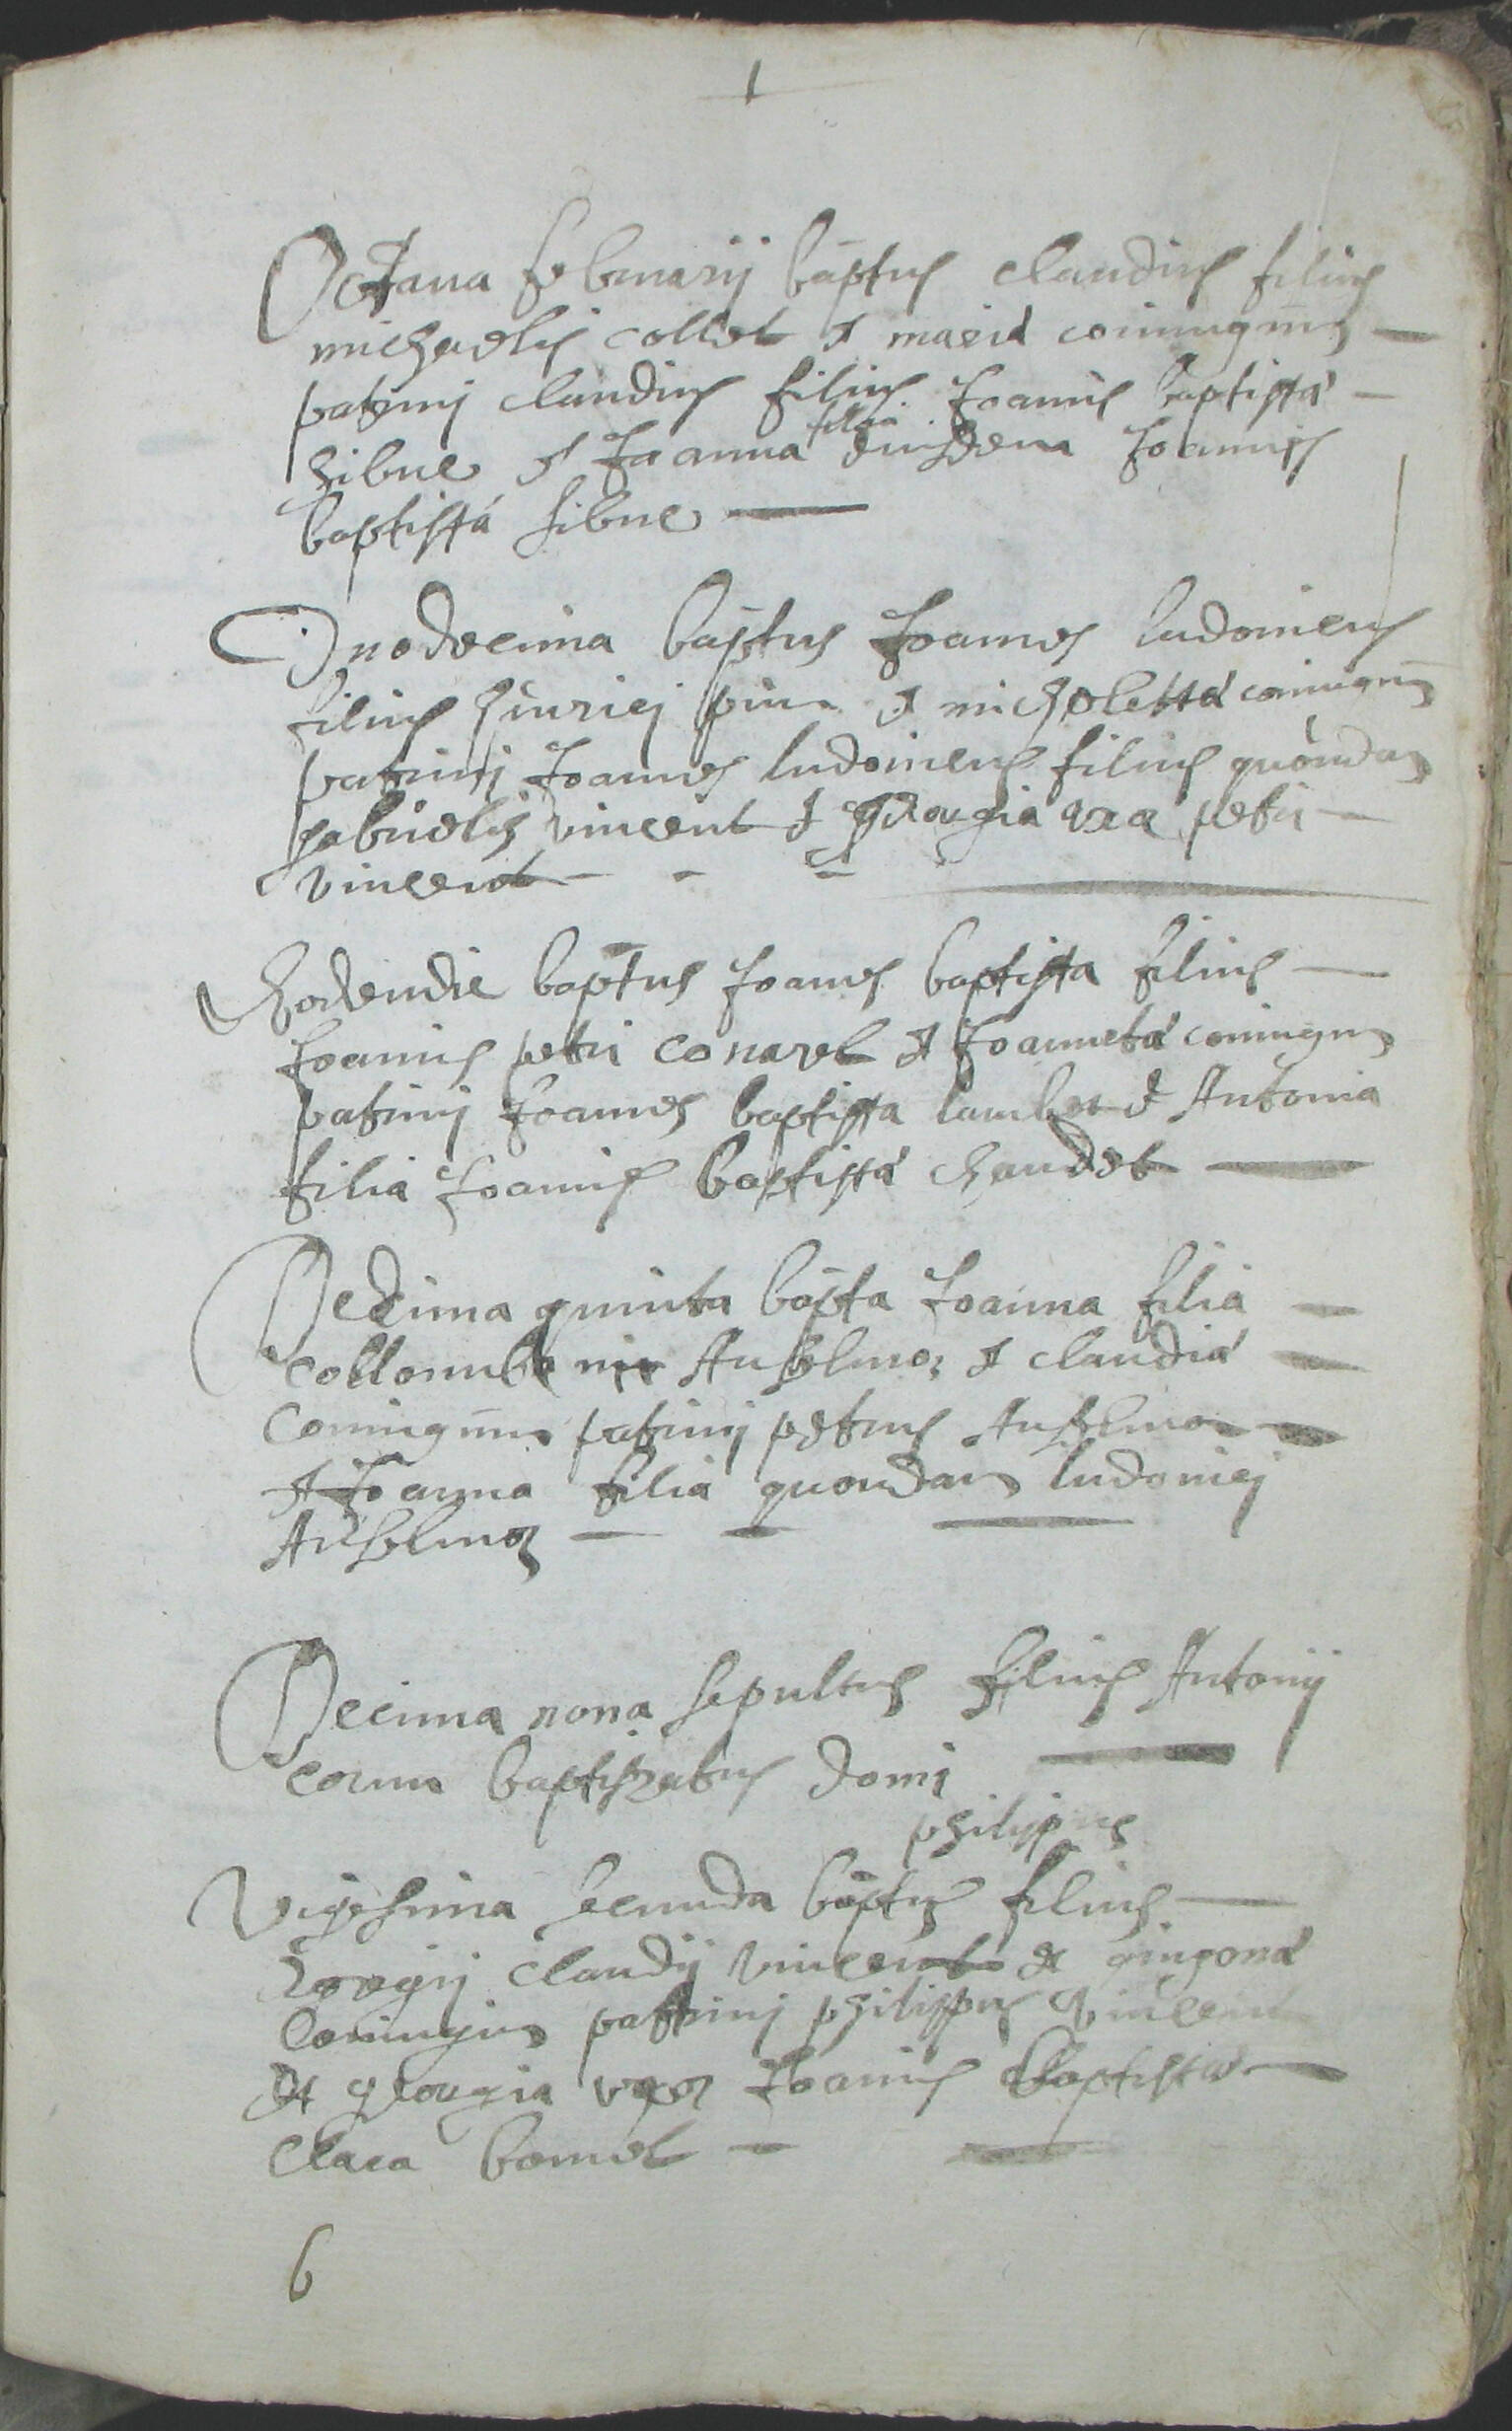 1
Octaua februarij baptus claudius filius
michaelis collet & maria coniugum
patrinj claudius filius Joannis baptista
& Joanna filia eiusdem Joannis
baptista
Duodecima baptus Joannes ludouicus
filius & micholetta coniugum
patrinj Joannes ludouicus filius quondam
gabrielis vincent & georgia uxor petri
vincent
Eodem die baptus Joannes baptista filius
Joannis petri & Joanneta coniugum
patrinj Joannes baptista & Antonia
filia Joannis baptista chaudet
Decima quinta bapta Joanna filia
Anselmoz & claudia
Coniugum patrinj petrus Anselmoz
& Joanna filia quondam ludouicj
Anselmoz
Decima nona sepultus filius Antonij
baptizatus domj
philippus
Vigesima secunda baptus filius
claudij vincent &
Coniugum patrinj philippus vincent
& georgia uxor Joannis baptista
6